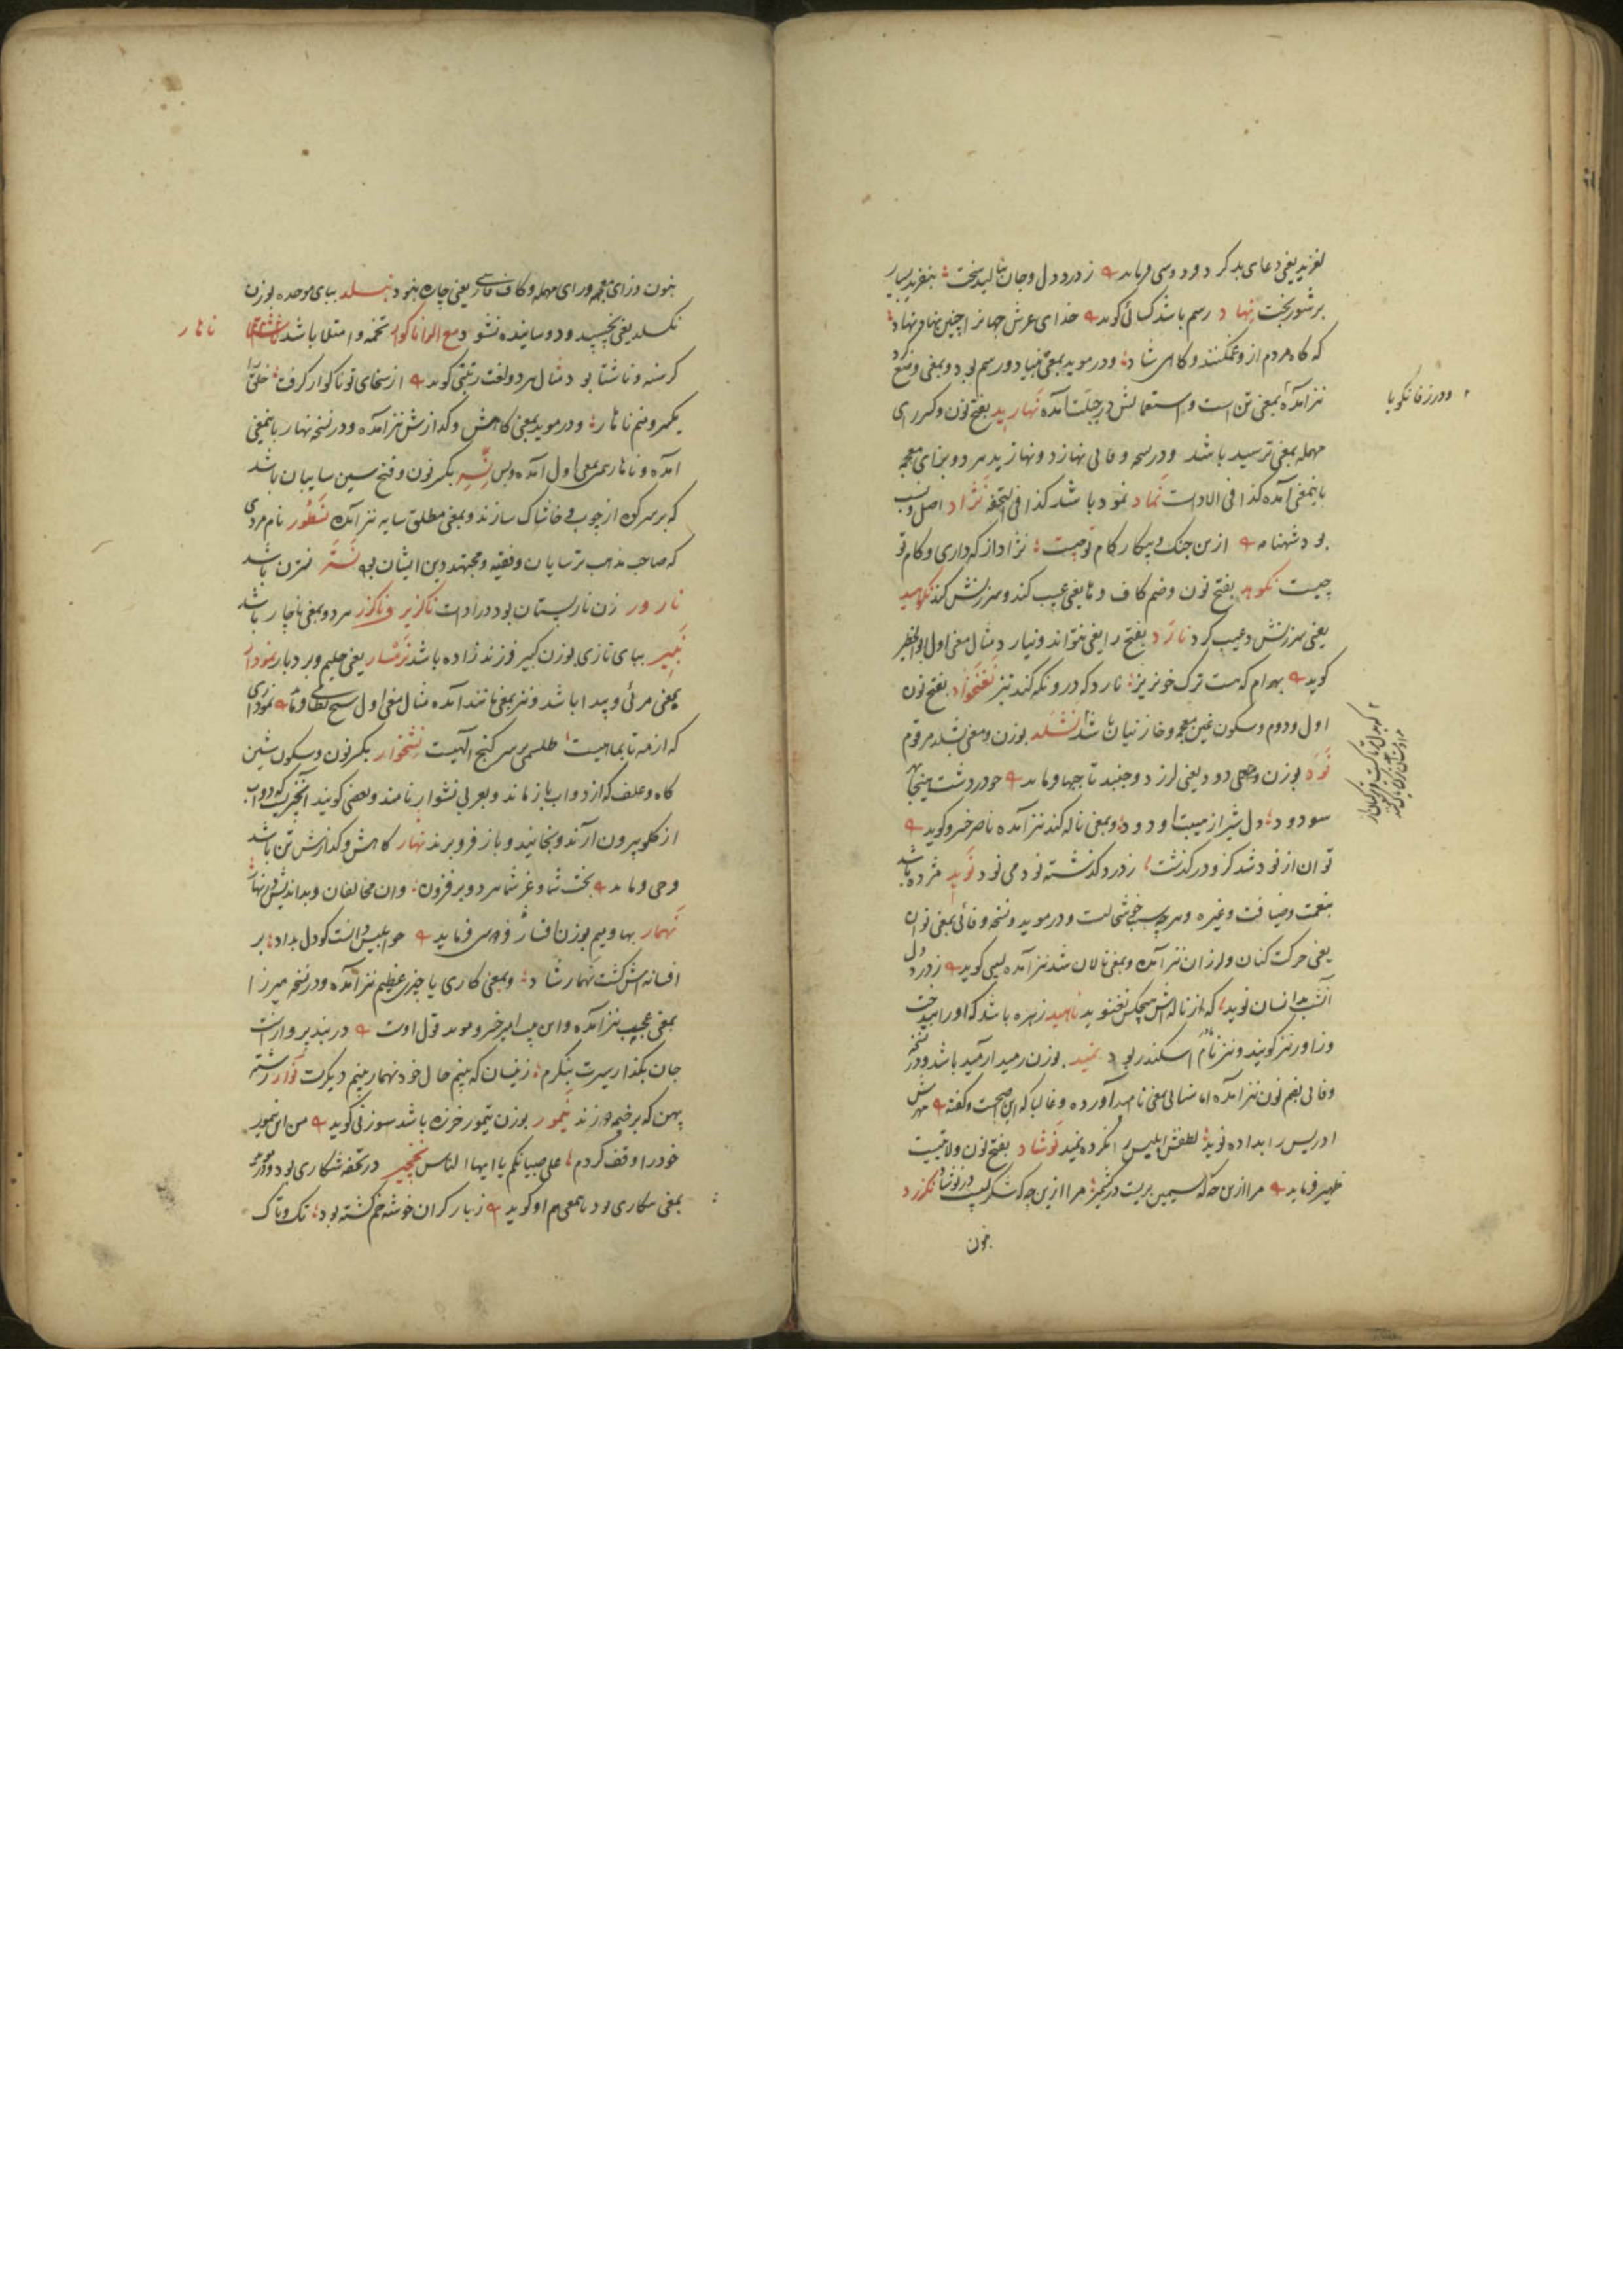 نفرید یعنی دعای بد کرد فردوسی فرماید ز درد دل و جان بنالید سخت بنفرید بسیار
بر شور بخت نهاد رسم باشد کسائی گوید خدای عرش جهانرا چنین نهاد نهاد
که گاه مردم ازو غمگنند و گاهی شاد و در موید بمعنی بنیاد و رسم بود و بمعنی وضع کرد
نیز آمده بمعنی تن است و استعمالش در جبلت آمده نهارید بفتح نون و کسر رای
مهمله بمعنی ترسید باشد و در نسخه وفائی نهازد و نهازید هر دو بزای معجمه
باینمعنی آمده کذا فی الادات نماد نمود باشد کذا فی التحفه نژاد اصل و نسب
بود شهنامه ازین جنگ و پیکار کام تو چیست نژاد از که داری و کام تو
چیست نکوهد بفتح نون و ضم کاف و ها یعنی عیب کند و سرزنش کند نکوهید
یعنی سرزنش و عیب کرد نارد بفتح را یعنی نتواند و نیارد مثال معنی اول ابوالخطیر
گوید بهرام که هست ترک خونریز نارد که درو نگه کند تیز نغنخواد بفتح نون
اول و دوم و سکون غین معجمه و خا زنیان باشد نشلد بوزن و معنی بشلد مرقوم
نود بوزن و دود یعنی لرزد و جنبد
سود و د دل شیر از هیبت او د و د و بمعنی ناله کند نیز آمده ناصر خسرو گوید
توان از نود شد کزو در گذشت ز درد گذشته نود می نود نوید مژده باشد
بنعمت و ضیافت و غیره و هر چه سبب خوشحالیست و در موید و نسخه وفائی بمعنی نوان
یعنی حرکت کنان و لرزان نیز آمده و بمعنی نالان شد نیز آمده لبیبی گوید ز درد دل
آنشب بدانسان نوید که از ناله‌اش هیچکس نغنوید ناهید زهره باشد که اورا بیدخت
و زاور نیز گویند و نیز نام مادر اسکندر بود نمید بوزن رمید ارمید باشد و در نسخه
وفائی بضم نون نیز آمده اما سنائی بمعنی ناامید آورده و غالبا که این صحیحست و گفته مهرش
ادریس را بداده نوید لطفش ابلیس را نکرده نمید نوشاد بفتح نون ولایتیست
ظهیر فرماید مرا ازین چه که سیمین بریست در کشمیر مرا ازین چه که شکر لبیست در نوشاد نگزرد
بنون
و در زفانگویا
بنون و زای معجمه و رای مهمله و کاف فارسی یعنی چاره نبود نبسلد ببای موحده بوزن
نگسلد یعنی نچسپد و دوسانیده نشود مع الرا ناگوار تخمه و امتلا باشد
ناهار
گرسنه و ناشتا بود مثال هر دو لغت رتبتی گوید از سخای تو ناگوار گرفت خلق را
یکسر و منم ناهار و در موید بمعنی کاهش و گدازش نیز آمده و در نسخه نهار باینمعنی
آمده و ناهار همین معنی اول آمده و بس نسر بکسر نون و فتح سین سایبان باشد
که بر سر کوه از چوب و خاشاک سازند و بمعنی مطلق سایه نیز آمده نسطور نام مردی
که صاحب مذهب ترسایان و فقیه و مجتهد دین ایشان بوده نستر نسترن باشد
نارور زن نار پستان بود در ادات ناگزیر و ناگزر هر دو بمعنی ناچار باشد
نبیر ببای تازی بوزن کبیر فرزند زاده باشد نرمسار یعنی حلیم و بردبار نمودار
بمعنی مرئی و پیدا باشد و نیز بمعنی مانند آمده مثال معنی اول شیخ نظامی فرماید نموداری
که از مه تا بماهیست طلسمی بر سر گنج الهیست نشخوار بکسر نون و سکون شین
کاه و علف که از دواب باز ماند و بعربی نشوار نامند و بعضی گویند آنچیزیست که دواب
از گلو بیرون آرند و بخایند و باز فرو برند نهار کاهش و گدازش تن باشد
فرخی فرماید بخت شما و عز شما هر دو بر فزون وان مخالفان و بداندیش در نهار
نهمار بها و میم بوزن افسار فردوسی فرماید چو ابلیس دانست کو دل بداد بر
افسانه‌اش گشت نهمار شاد و بمعنی کاری یا چیزی عظیم نیز آمده و در نسخه میرزا
بمعنی عجیب نیز آمده و این بیت امیر خسرو موید قول اوست در بند پرواز است
جان بگذار سیرت بنگرم زینسان که بینم حال خود نهمار بینم دیگرت نوار رشته
پهن که بر خیمه دوزند نیمور بوزن تیمور خرزه باشد سوزنی گوید من این نیمور
خود را وقف کردم علی صبیانکم یا ایها الناس نخجیر در تحفه شکاری بود و در موید
بمعنی شکاری بود زبار گران خوشه خم گشته بود تک و تاک